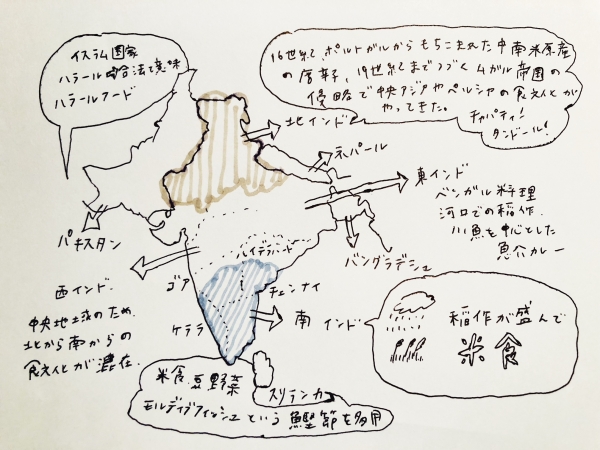 イスラム国家
ハラール=合法て意味
ハラールフード
16世紀で、ポルトガルからもちこまれた中南米原産
の唐辛子、19世紀までつづくムガル帝国の
侵略で中央アジアやペルシャの食文化が
やってきた。
チャパティ!
タンドール!
北インド
ネパール
東インド
ベンガル料理
河口での稲作.
川魚を中心とした
魚介カレー
パキスタン
バングラデシュ
ハイデラバード
ゴア
チェンナイ
ケララ
西インド.
中央地域のため.
北から南からの
食文化が混在.
南インド
稲作が盛んで
米食
米食 豆野菜
スリランカ
モルディブフィッシュという鰹節を多用